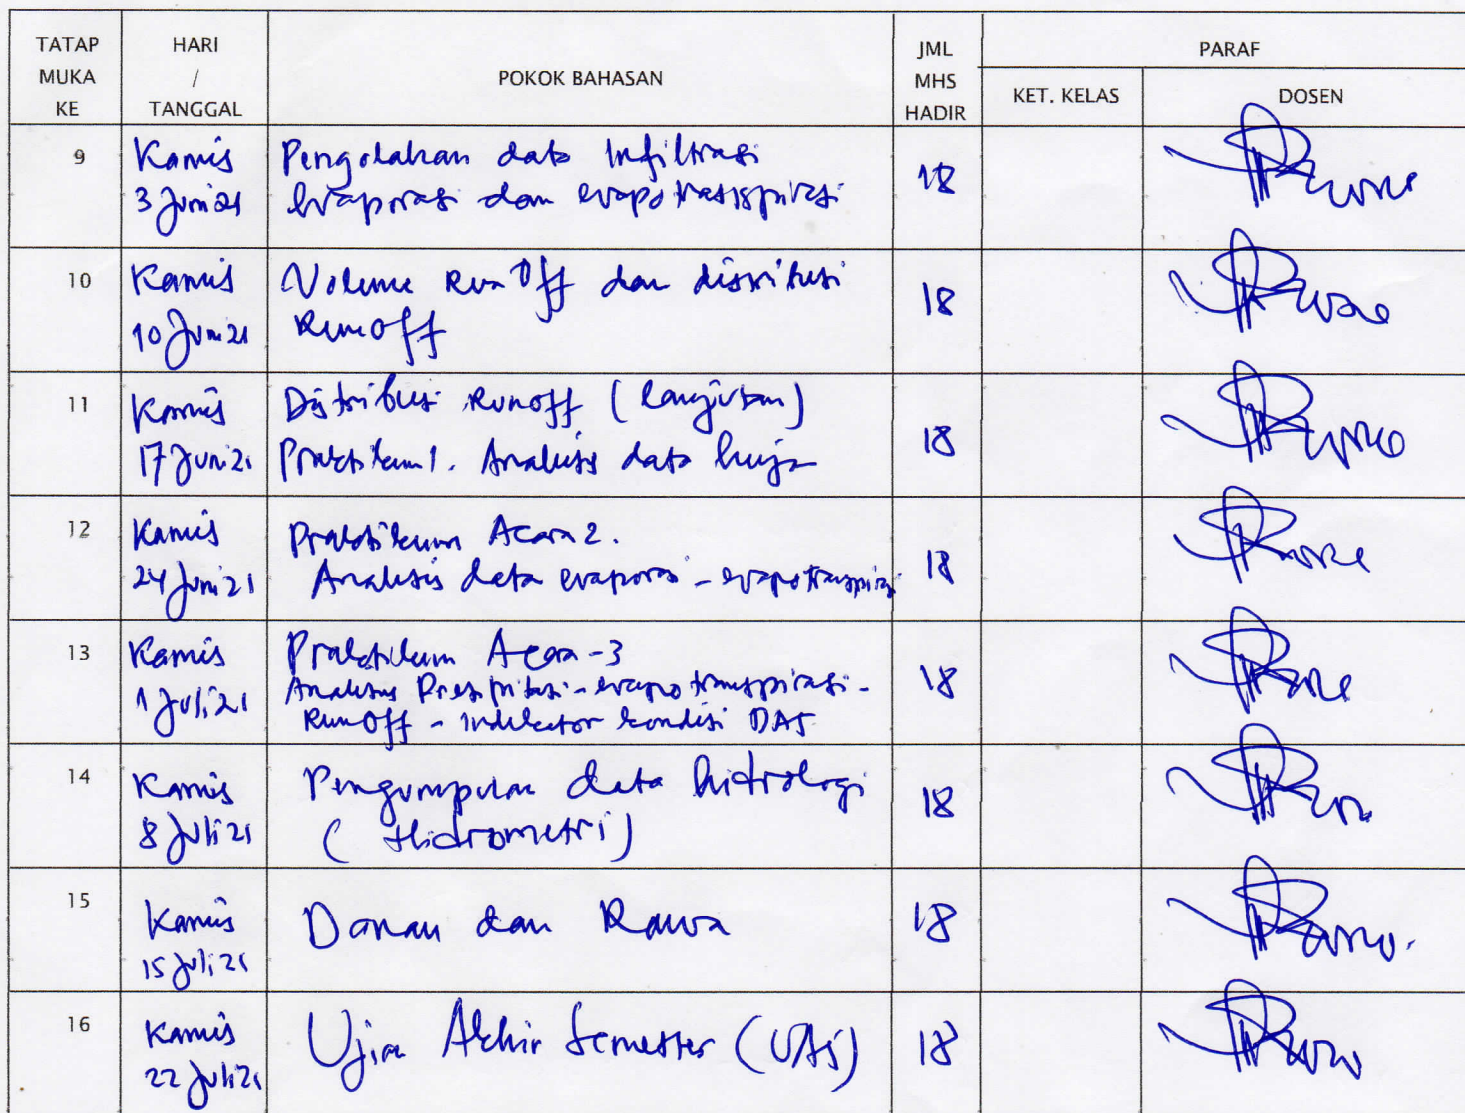 TATAP MUKA KE
HARI / TANGGAL
POKOK BAHASAN
JML MHS HADIR
PARAF
KET. KELAS
DOSEN
9
Kamis
3 Juni 21
Pengolahan data Infiltrasi
evaporasi dan evapotrasispirasi
18
10
Kamis
10 Juni 21
Volume Run Off dan distribusi
RunOff
18
11
Kamis
17 Juni 21
Distribusi Runoff (lanjutan)
Praktikum 1. Analisis data hujan
18
12
Kamis
24 Juni 21
Praktikum Acara 2.
Analisis data evaporasi - evapotranspirasi
18
13
Kamis
1 Juli 21
Praktikum Acara -3
Analisis Presipitasi - evapotranspirasi -
RunOff - Indikator kondisi DAS
18
14
Kamis
8 Juli 21
Pengumpulan data hidrologi
(Hidrometri)
18
15
Kamis
15 Juli 21
Danau dan Rawa
18
16
Kamis
22 Juli 21
Ujian Akhir Semester (UAS)
18